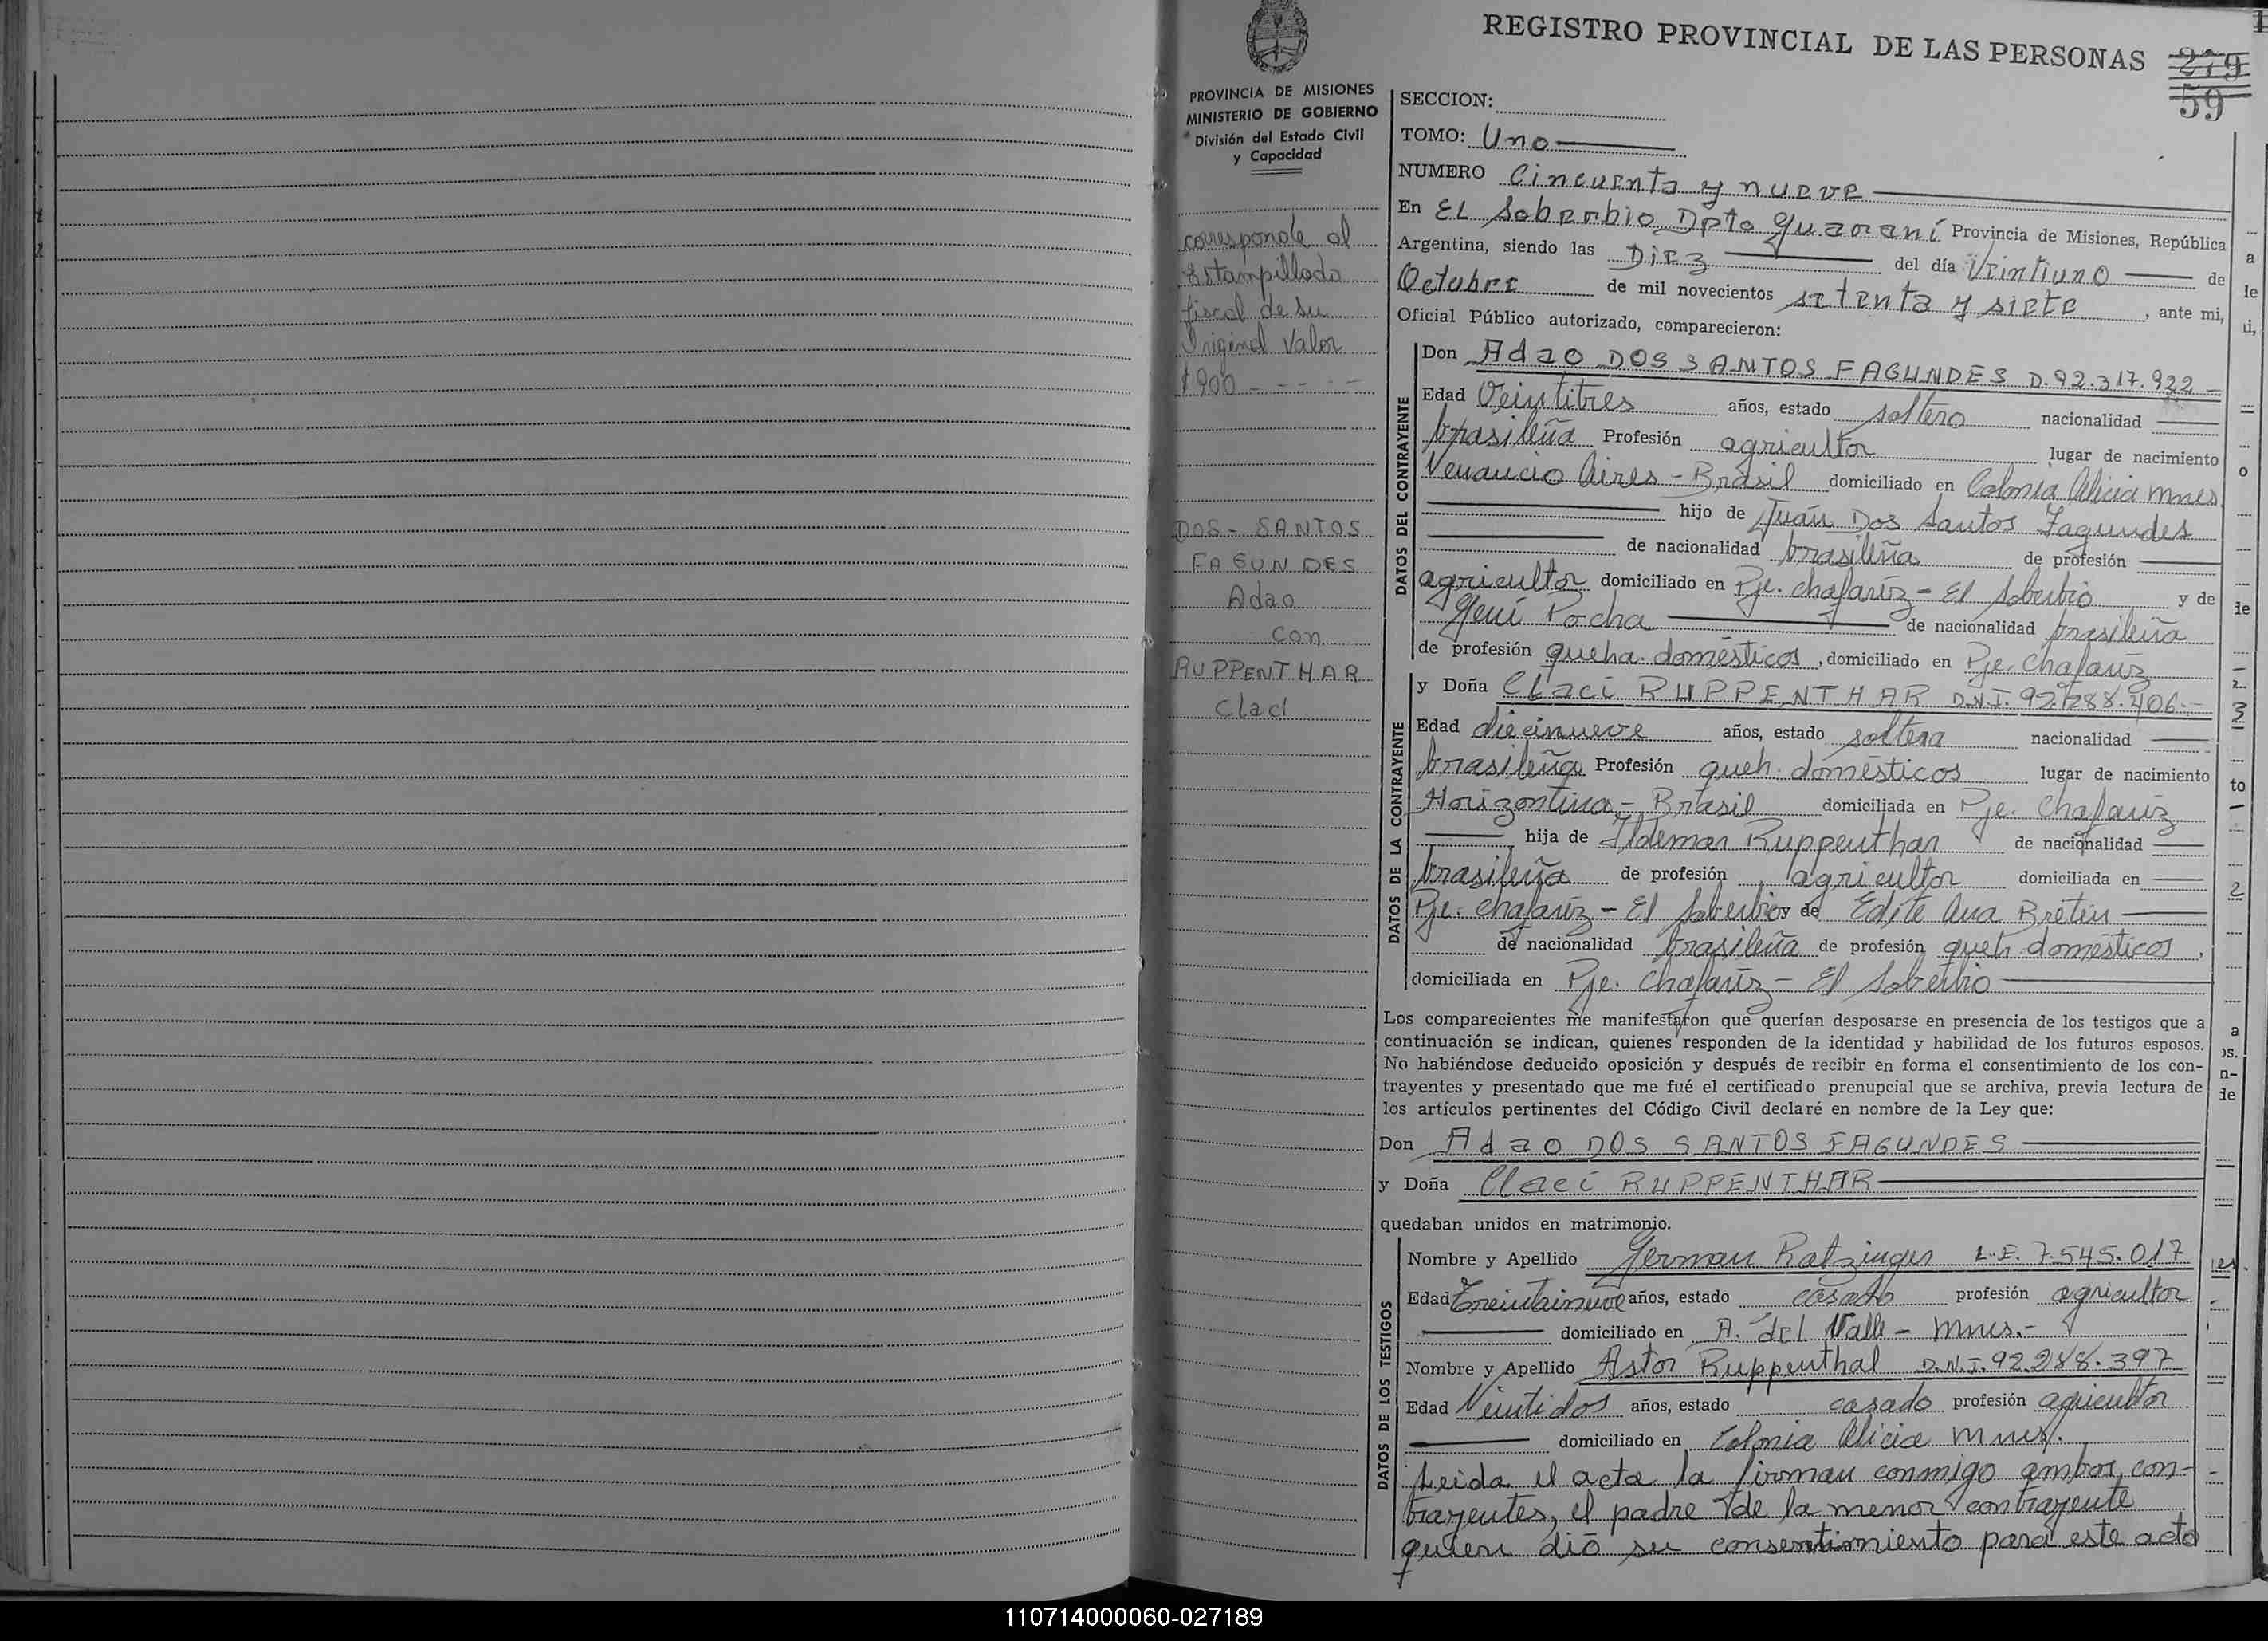 REGISTRO PROVINCIAL DE LAS PERSONAS
279
59
PROVINCIA DE MISIONES
MINISTERIO DE GOBIERNO
División del Estado Civil
y Capacidad
corresponde al
Estampillado
fiscal de su
Original Valor
$ 900 - - - - -
DOS - SANTOS
FAGUNDES
Adao
con
RUPPENTHAR
Claci
SECCION:
TOMO: Uno
NUMERO Cincuenta y nueve
En EL Soberbio Dpto Guaraní Provincia de Misiones, República
Argentina, siendo las Diez del día Veintiuno de
Octubre de mil novecientos setenta y siete, ante mi,
Oficial Público autorizado, comparecieron:
DATOS DEL CONTRAYENTE
Don Adao DOS SANTOS FAGUNDES D. 92.317.922 -
Edad Veintitres años, estado soltero nacionalidad
brasileña Profesión agricultor lugar de nacimiento
Venancio Aires - Brasil domiciliado en Colonia Alicia Mnes
hijo de Juán Dos Santos Fagundes
de nacionalidad brasileña de profesión
agricultor domiciliado en Pje. Chafaríz - El Soberbio y de
Gení Rocha de nacionalidad brasileña
de profesión queha. domésticos, domiciliado en Pje. Chafaríz
DATOS DE LA CONTRAYENTE
y Doña Claci RUPPENTHAR D.N.I. 92.288.406.-
Edad diecinueve años, estado soltera nacionalidad
brasileña Profesión queh. domésticos lugar de nacimiento
Horizontina - Brasil domiciliada en Pje. Chafaríz
hija de Ildemar Ruppenthar de nacionalidad
brasileña de profesión agricultor domiciliada en
Pje. Chafaríz - El Soberbio y de Edite Ana Bretin
de nacionalidad brasileña de profesión queh. domésticos,
domiciliada en Pje. Chafaríz - El Soberbio
Los comparecientes me manifestaron que querían desposarse en presencia de los testigos que a
continuación se indican, quienes responden de la identidad y habilidad de los futuros esposos.
No habiéndose deducido oposición y después de recibir en forma el consentimiento de los con-
trayentes y presentado que me fué el certificado prenupcial que se archiva, previa lectura de
los artículos pertinentes del Código Civil declaré en nombre de la Ley que:
Don Adao DOS SANTOS FAGUNDES
y Doña Claci RUPPENTHAR
quedaban unidos en matrimonio.
DATOS DE LOS TESTIGOS
Nombre y Apellido German Ratzinger L.E. 7.545.017
Edad Treintainueve años, estado casado profesión agricultor
domiciliado en A. del Valle - Mnes.-
Nombre y Apellido Astor Ruppenthal D.N.I. 92.288.397
Edad Veintidos años, estado casado profesión agricultor
domiciliado en Colonia Alicia Mnes.
Leida el acta la firman conmigo ambos con-
trayentes, el padre de la menor contrayente
quien dió su consentimiento para este acto
110714000060-027189